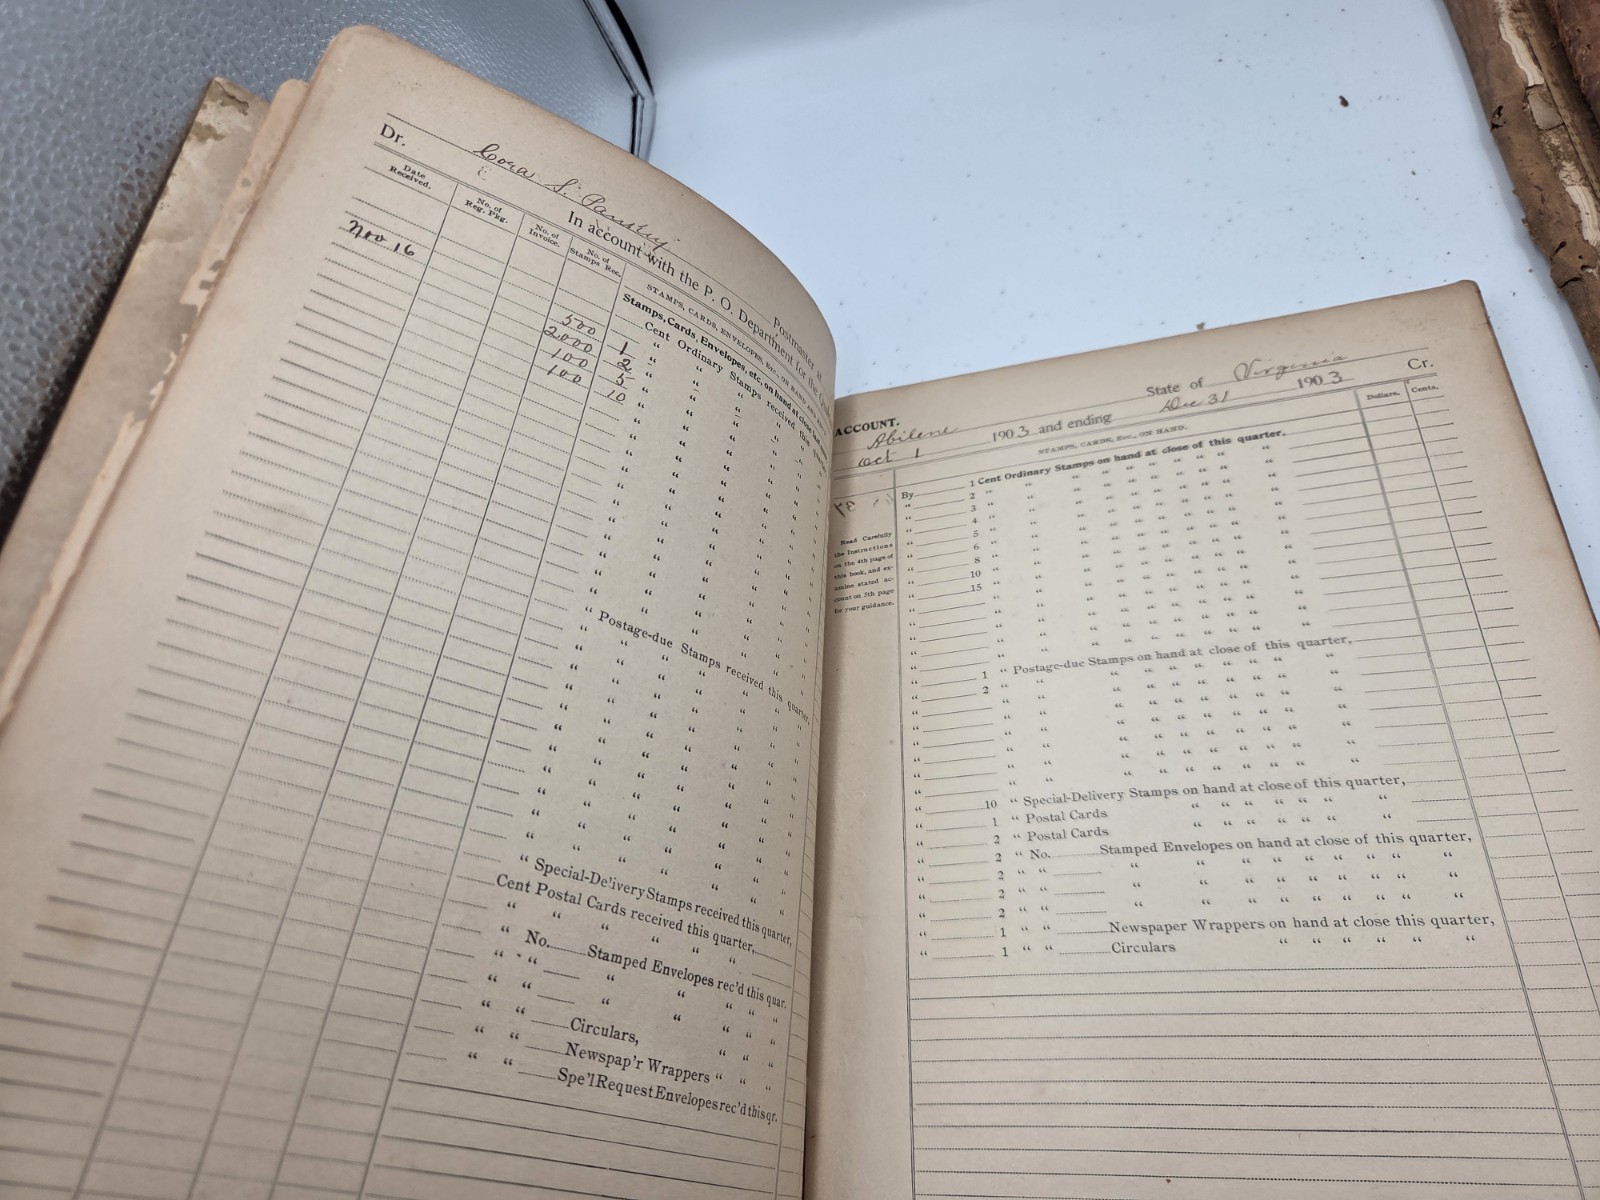 Dr. Cora S. Postmaster at
In account with the P. O. Department for the
Date Received.
No. of Reg. Pkg.
No. of Invoice.
No. of Stamps Rec.
STAMPS, CARDS, ENVELOPES, ETC., ON HAND AND
Stamps, Cards, Envelopes, etc. on hand at close last
Nov 16
500 1 Cent Ordinary Stamps received this quarter,
2000 2 " " " " " "
100 5 " " " " " "
100 10 " " " " " "
" Postage-due Stamps received this quarter,
" Special-Delivery Stamps received this quarter,
Cent Postal Cards received this quarter,
" " " " "
" No. Stamped Envelopes rec'd this quar.
" " " " " " "
" " " " " " "
" " Circulars, " " "
" " Newspap'r Wrappers " " "
" " Spe'l Request Envelopes rec'd this qr.
ACCOUNT.
Abilene State of Virginia Cr.
Oct 1 1903 and ending Dec 31 1903
STAMPS, CARDS, Etc., ON HAND.
Dollars. Cents.
Read Carefully
the Instructions
on the 4th page of
this book, and ex-
amine stated ac-
count on 5th page
for your guidance.
By 1 Cent Ordinary Stamps on hand at close of this quarter,
" 2 " " " " " " " " "
" 3 " " " " " " " " "
" 4 " " " " " " " " "
" 5 " " " " " " " " "
" 6 " " " " " " " " "
" 8 " " " " " " " " "
" 10 " " " " " " " " "
" 15 " " " " " " " " "
" 1 " Postage-due Stamps on hand at close of this quarter,
" 2 " " " " " " " " "
" 10 " Special-Delivery Stamps on hand at close of this quarter,
" 1 " Postal Cards " " " " " "
" 2 " Postal Cards " " " " " "
" 2 " No. Stamped Envelopes on hand at close of this quarter,
" 2 " " " " " " " " " "
" 2 " " " " " " " " " "
" 2 " " " " " " " " " "
" 1 " " Newspaper Wrappers on hand at close this quarter,
" 1 " " Circulars " " " " " "